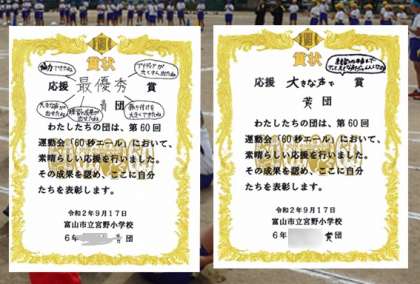 賞状
アイディアが
たくさん出たね
応援 最優秀 賞
大きな声が
出せたね
練習の成果が
出せたね
振り付けを
大きくできたね
青団
わたしたちの団は、第60回
運動会「60秒エール」において、
素晴らしい応援を行いました。
その成果を認め、ここに自分
たちを表彰します。
令和2年9月17日
富山市立宮野小学校
6年 青団
賞状
応援 大きな声で 賞
黄団
わたしたちの団は、第60回
運動会「60秒エール」において、
素晴らしい応援を行いました。
その成果を認め、ここに自分
たちを表彰します。
令和2年9月17日
富山市立宮野小学校
6年 黄団